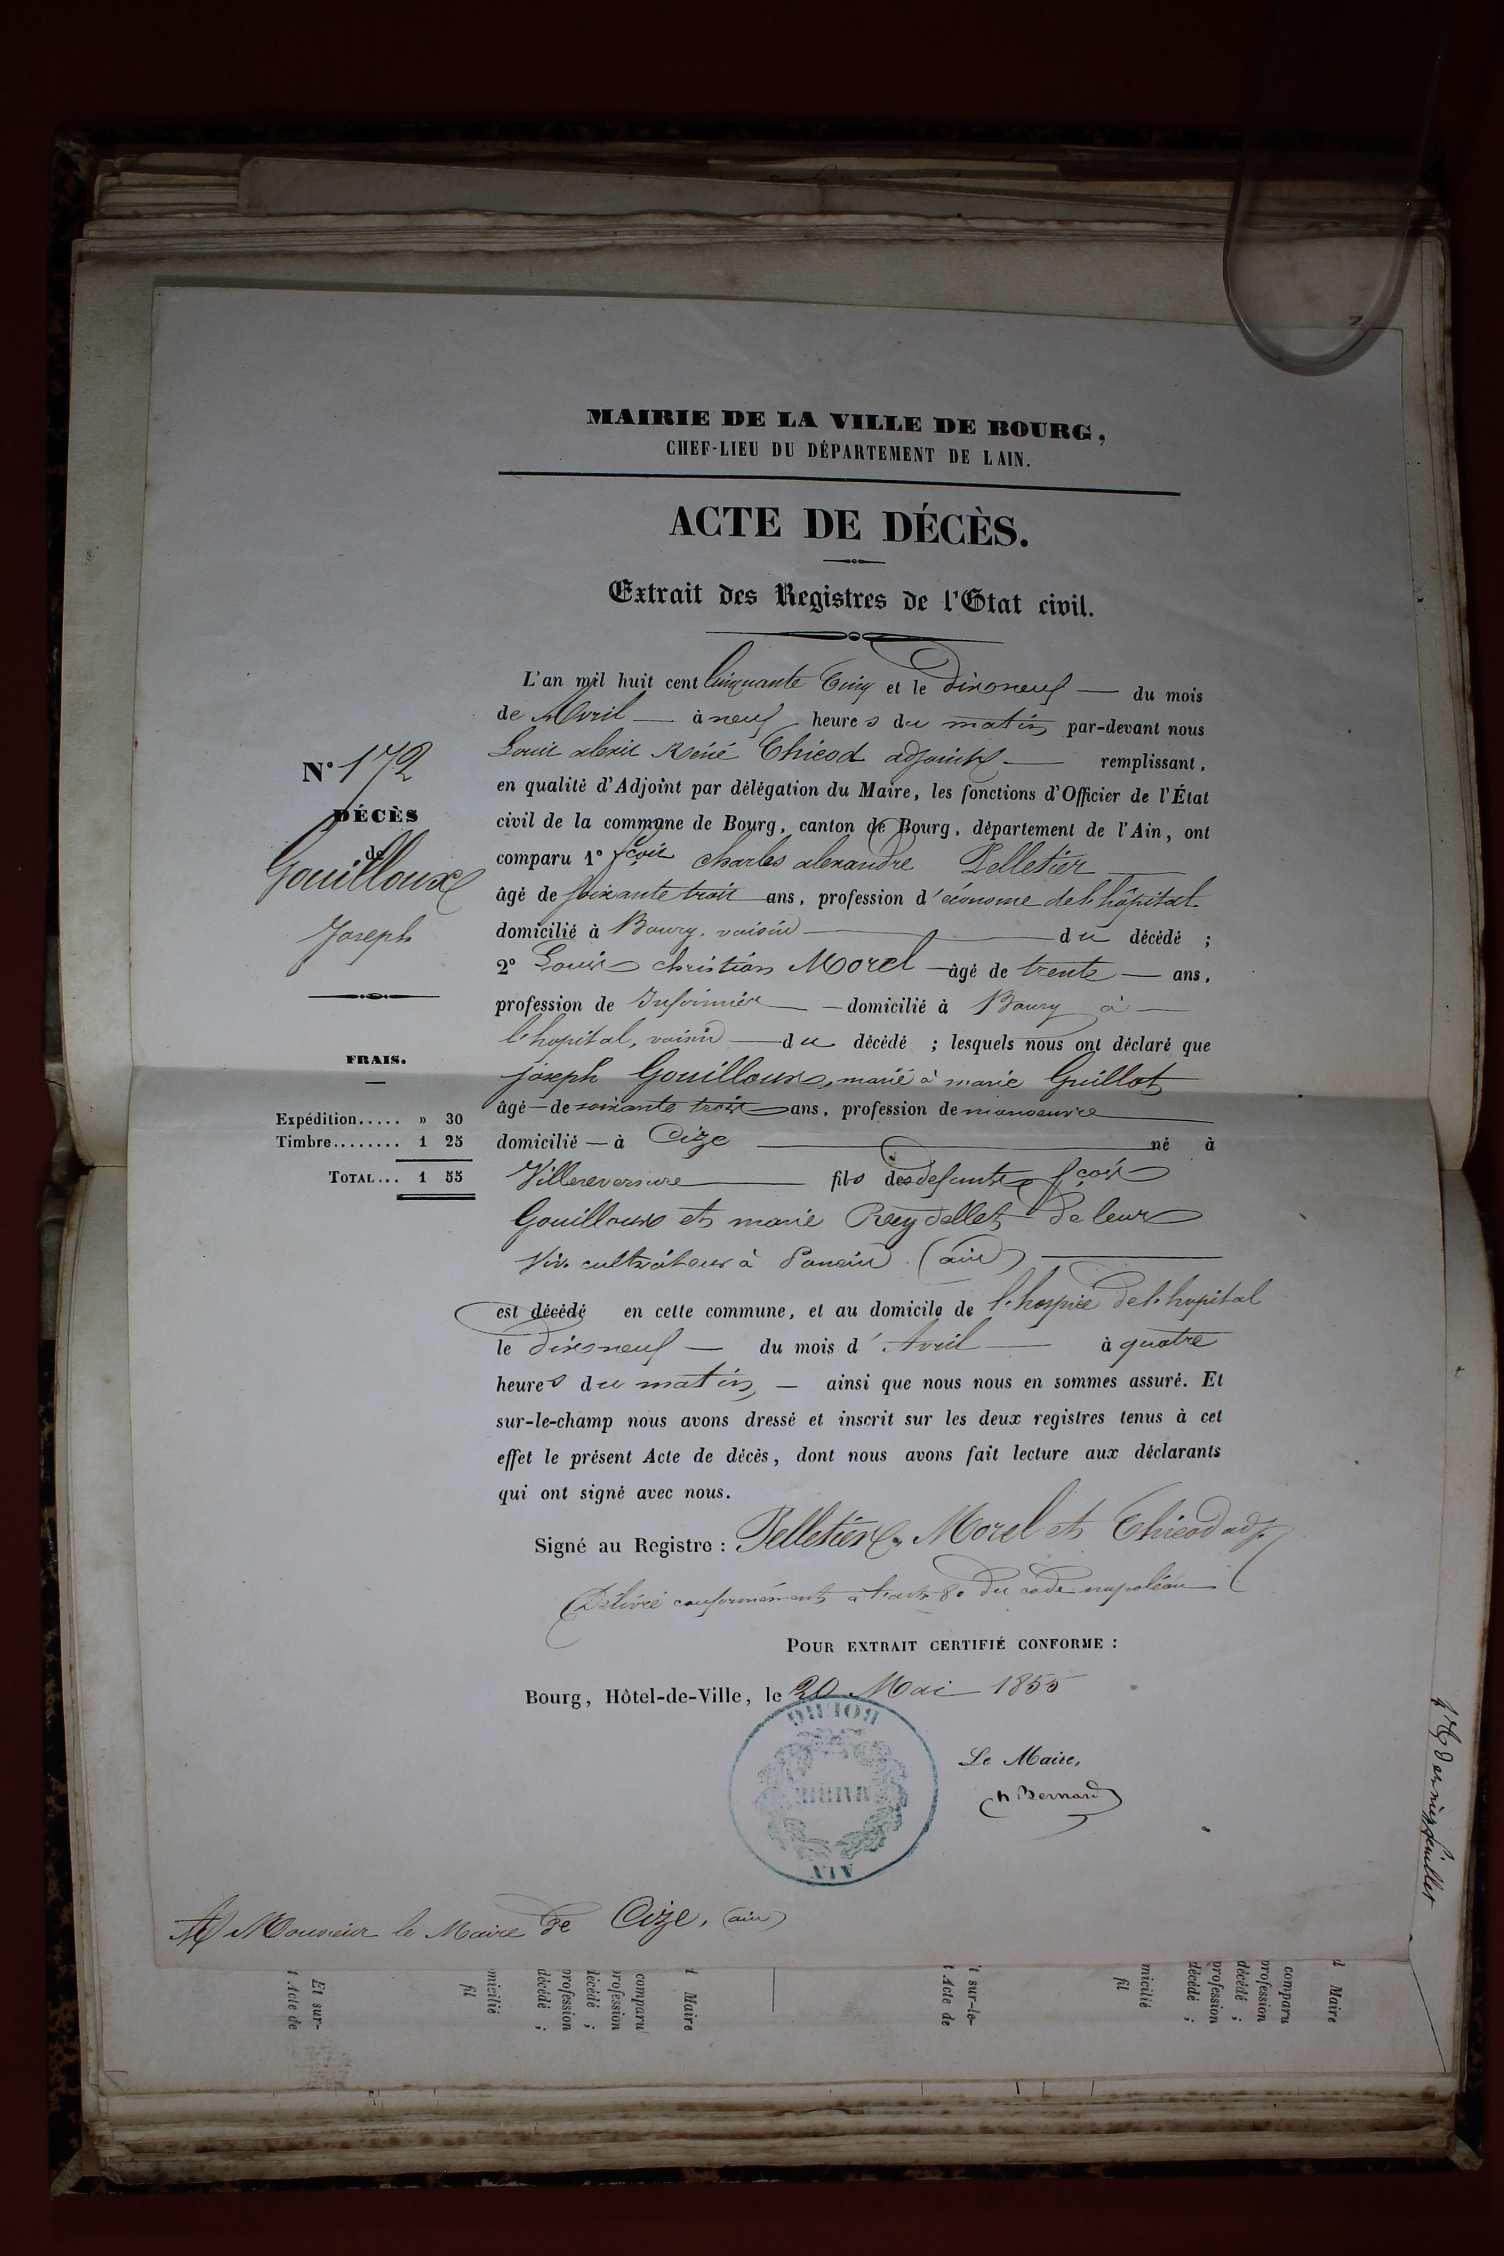 MAIRIE DE LA VILLE DE BOURG,
CHEF-LIEU DU DÉPARTEMENT DE L'AIN.
ACTE DE DÉCÈS.
Extrait des Registres de l'Etat civil.
L'an mil huit cent Cinquante Cinq et le dixneuf — du mois
de Avril — à neuf heures du matin par-devant nous
Louis alexis René Chicod adjoint — remplissant,
en qualité d'Adjoint par délégation du Maire, les fonctions d'Officier de l'État
civil de la commune de Bourg, canton de Bourg, département de l'Ain, ont
comparu 1° fçois charles alexandre Pelletier
âgé de soixante trois ans, profession d'économe de l'hôpital
domicilié à Bourg, voisin — du décédé ;
2° Louis christian Morel — âgé de trente — ans,
profession de Infirmier — domicilié à Bourg à —
l'hopital, voisin — du décédé ; lesquels nous ont déclaré que
joseph Gouilloux, marié à marie Guillot
âgé — de soixante trois ans, profession de manoeuvre
domicilié — à Cize — né à
Villereversure — fils des défunts fçois
Gouilloux et marie Reydellet de leur
viv. cultivateurs à (ain) —
est décédé en cette commune, et au domicile de l'hospice de l'hopital
le dixneuf — du mois d'Avril — à quatre
heures du matin, — ainsi que nous nous en sommes assuré. Et
sur-le-champ nous avons dressé et inscrit sur les deux registres tenus à cet
effet le présent Acte de décès, dont nous avons fait lecture aux déclarants
qui ont signé avec nous.
Signé au Registre : Pelletier, Morel et Chicod adj.
Délivré conformément à l'art. 80 du code napoléon
POUR EXTRAIT CERTIFIÉ CONFORME :
Bourg, Hôtel-de-Ville, le 20 Mai 1855
Le Maire,
Bernard
BOURG
MAIRIE
AIN
A Monsieur le Maire de Cize, (ain)
N° 172
DÉCÈS
de
Gouilloux
Joseph
FRAIS.
Expédition..... » 30
Timbre........ 1 25
TOTAL... 1 55
dernier feuillet
Et sur-
t Acte de
micilié
fil
décédé ;
profession
décédé ;
profession
comparu
d Maire
t sur-le-
t Acte de
micilié
fil
décédé ;
profession
décédé ;
profession
comparu
d Maire